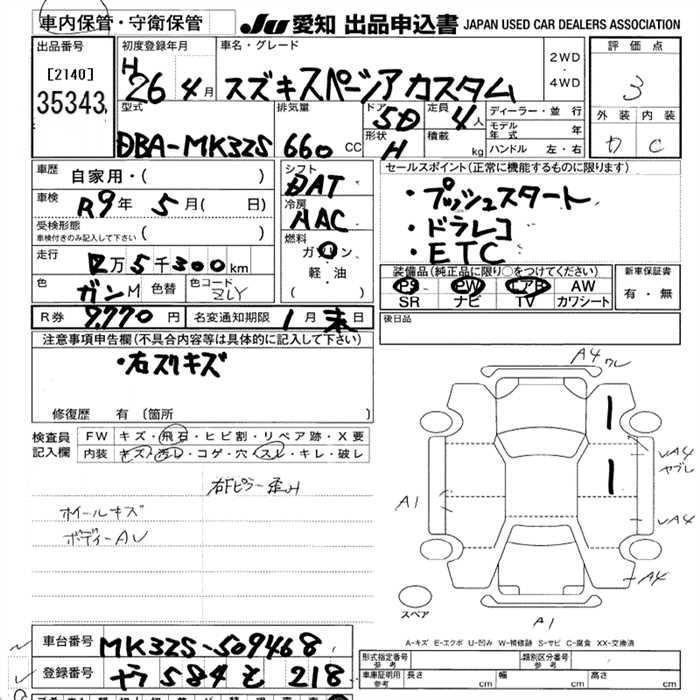 車内保管・守衛保管
JU 愛知 出品申込書 JAPAN USED CAR DEALERS ASSOCIATION
出品番号
[2140]
35343
初度登録年月
H 26 4月
車名・グレード
スズキスペーシアカスタム
2WD
・
4WD
評価点
3
外装 内装
カ C
型式
DBA-MK32S
排気量
660 CC
ドア
5D
形状
H
定員
4人
積載
kg
ディーラー・並行
モデル年式 年
ハンドル 左・右
車歴
自家用・( )
車検
R9年 5月( 日)
受検形態
車検付きのみ記入して下さい ( )
走行
万5千300km
色
ガンM
色替
色コード
ZLY
シフト
DAT
冷房
AAC
燃料
ガソリン
軽・油
( )
セールスポイント(正常に機能するものに限ります)
・プッシュスタート
・ドラレコ
・ETC
装備品(純正品に限り○をつけてください)
PS PW エアB AW
SR ナビ TV カワシート
新車保証書
有・無
R券 7,770円
名変通知期限 1月末日
後日品
注意事項申告欄(不具合内容等は具体的に記入して下さい)
・右スリキズ
修復歴 有 [箇所 ]
検査員記入欄
FW キズ・飛石・ヒビ割・リペア跡・X要
内装 キズ・汚レ・コゲ・穴・スレ・キレ・破レ
右Fピラー歪み
ホイールキズ
ボディーAU
A4 ワレ
A4
ヤブレ
A4
A1
A4
スペア
A1
A-キズ E-エクボ U-凹み W-補修跡 S-サビ C-腐食 XX-交換済
車台番号 MK32S-509468
登録番号 584 218
形式指定番号
参考
類別区分番号
参考
車庫証明用
参考
長さ cm
幅 cm
高さ cm